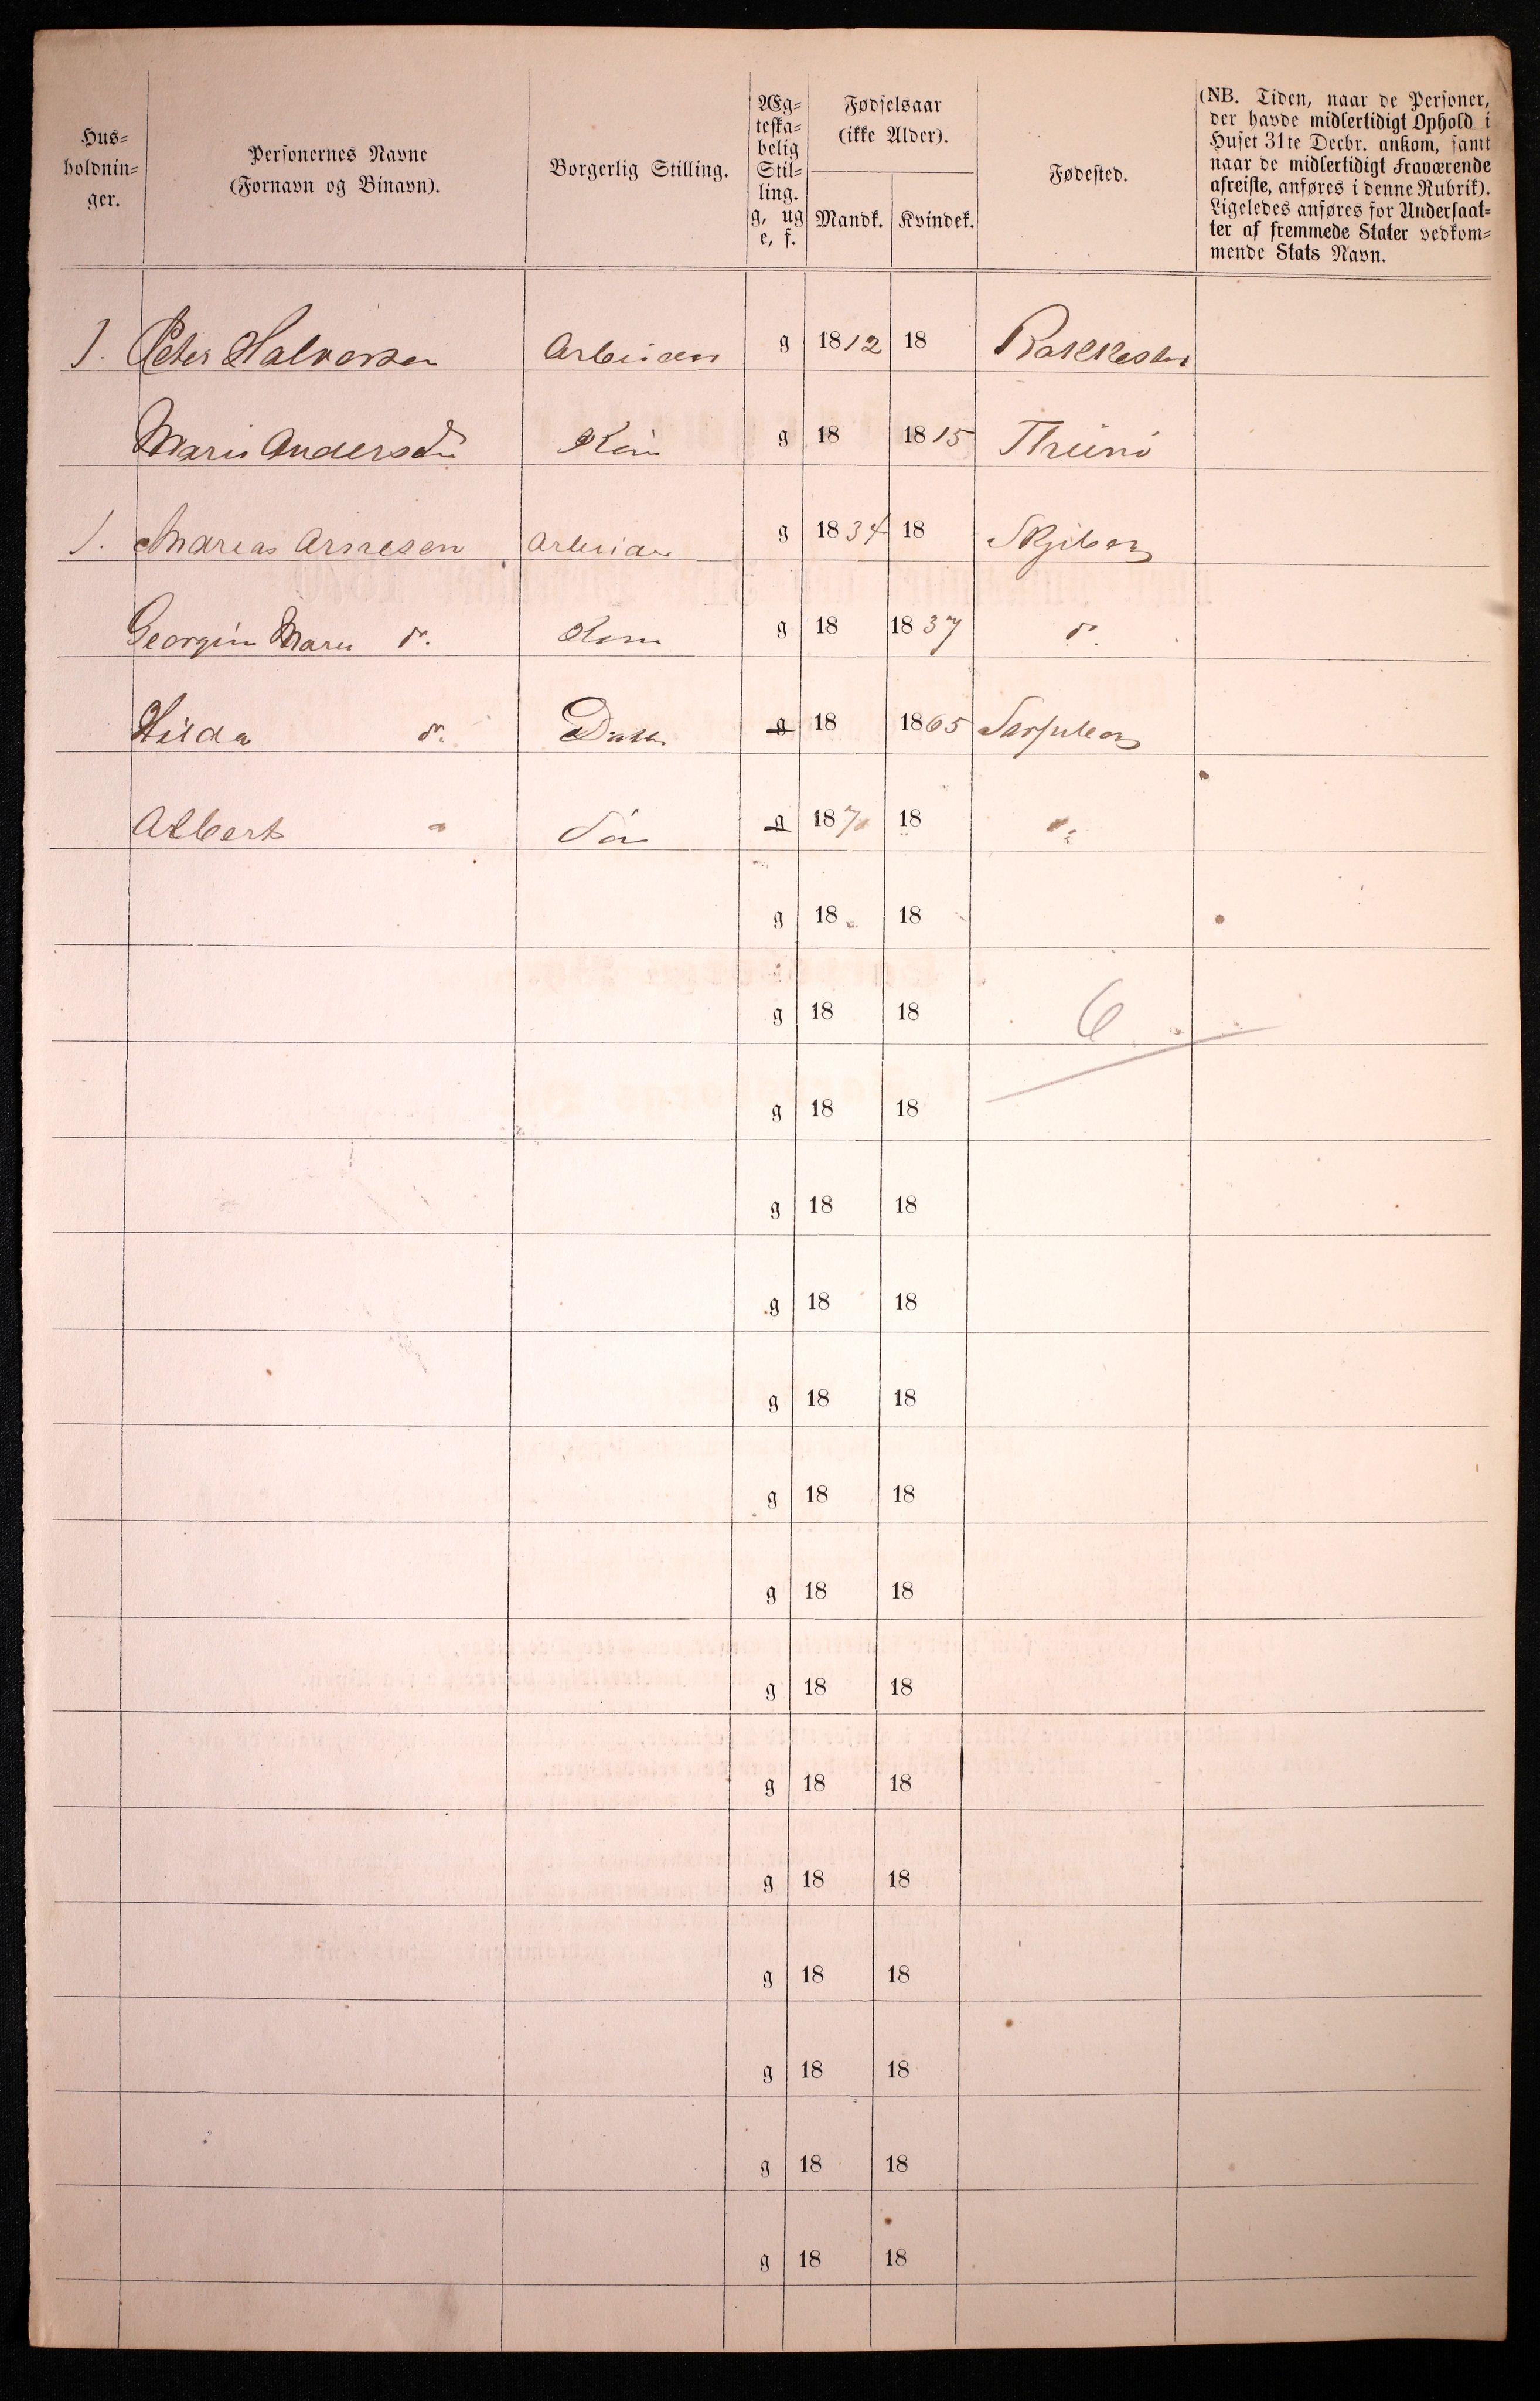 Hus=
holdnin=
ger.
Personernes Navne
(Fornavn og Binavn).
Borgerlig Stilling.
Æg=
teska=
belig
Stil=
ling.
g, ug
e, f.
Fødselsaar
(ikke Alder).
Mandk. Kvindek.
Fødested.
(NB. Tiden, naar de Personer,
der havde midlertidigt Ophold i
Huset 31te Decbr. ankom, samt
naar de midlertidigt Fraværende
afreiste, anføres i denne Rubrik).
Ligeledes anføres for Undersaat=
ter af fremmede Stater vedkom=
mende Stats Navn.
1. Peter Halvorsen Arbeider g 1812 18 Rakkestad
Maria Andersdr Kone g 18 1815 Thunø
1. Andreas Arnesen Arbeider g 1834 18 Skjeberg
Georgine Marie do. Kone g 18 1837 do.
Hilda do. Datter g 18 1865 Sarpsborg
Albert " Søn g 1870 18 "
g 18 18
g 18 18 6
g 18 18
g 18 18
g 18 18
g 18 18
g 18 18
g 18 18
g 18 18
g 18 18
g 18 18
g 18 18
g 18 18
g 18 18
g 18 18